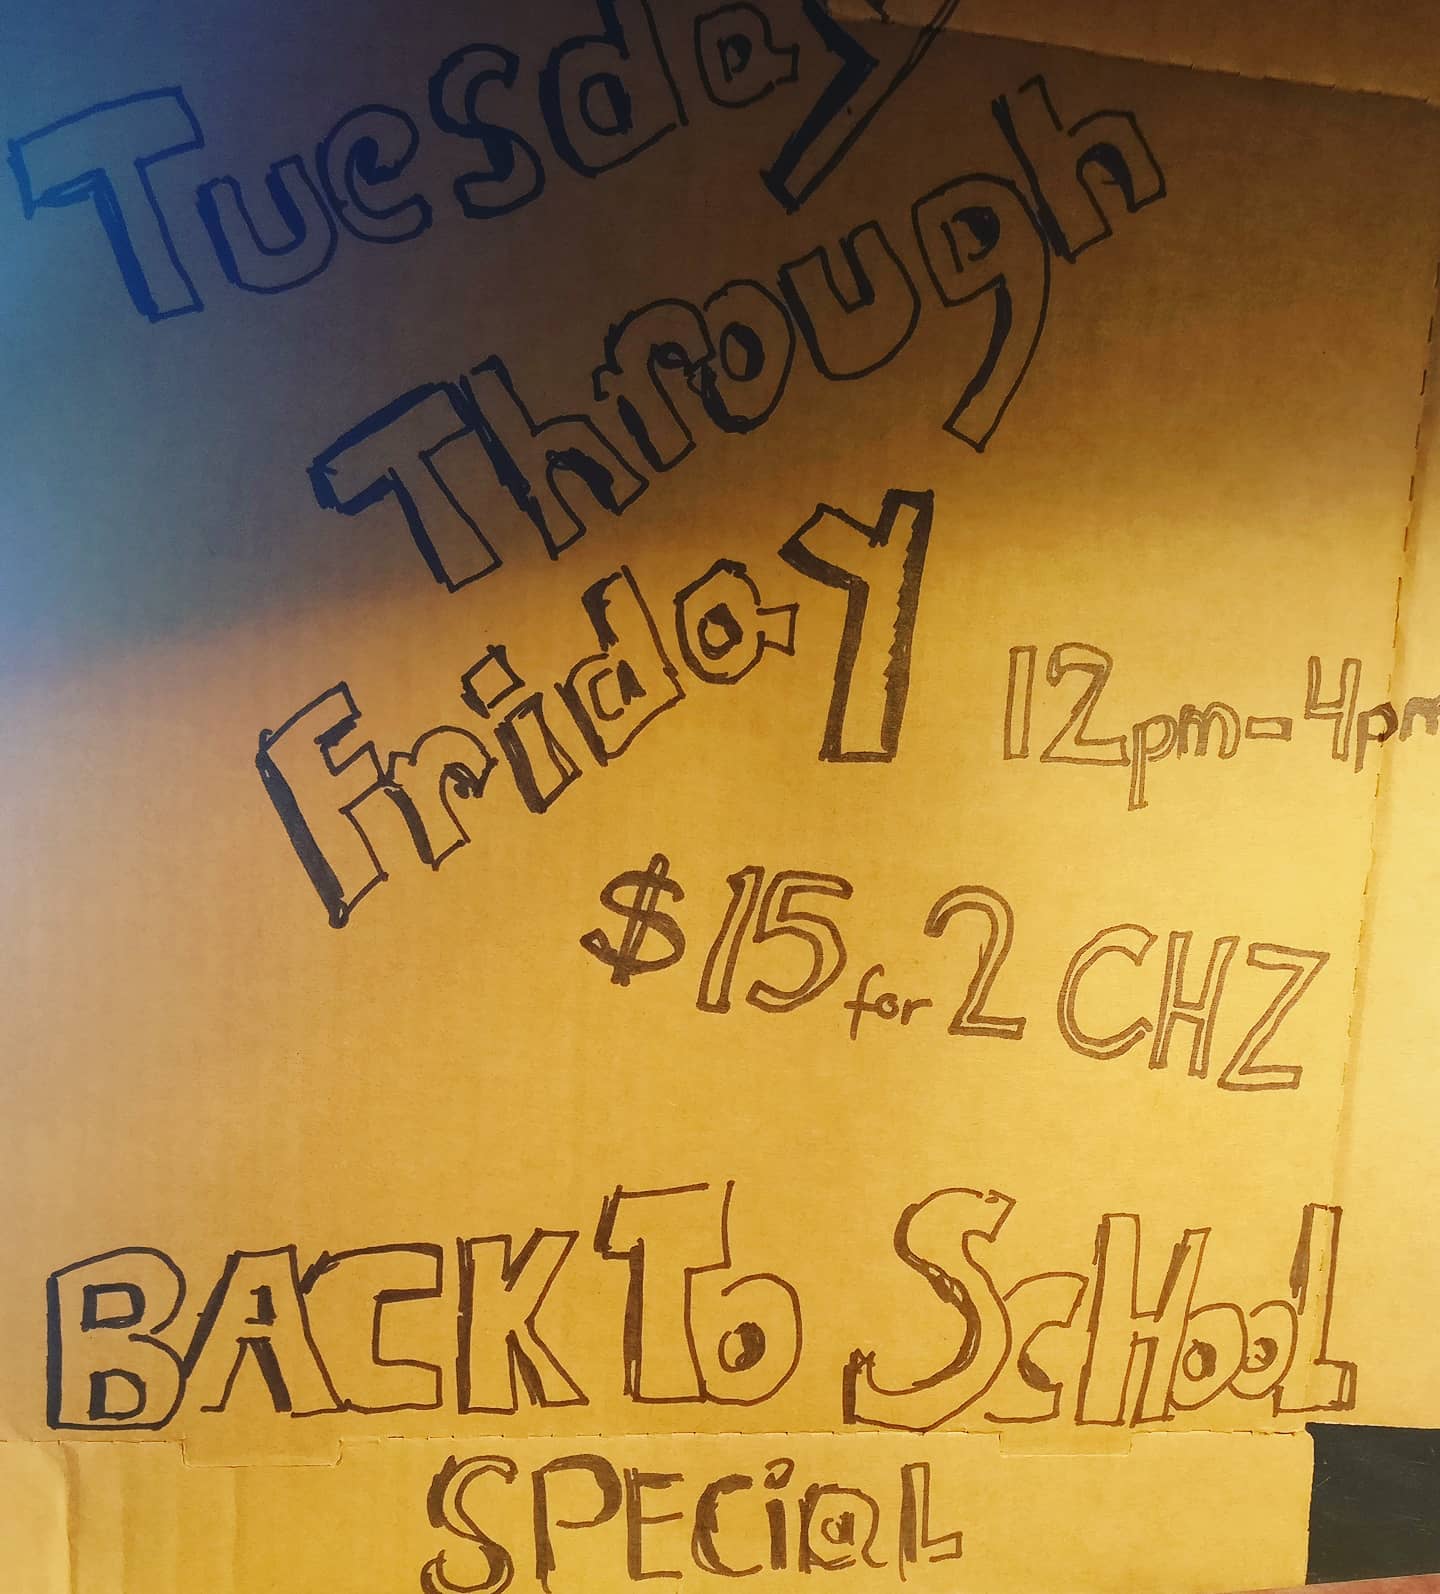 Tuesday
Through
Friday
12pm-4pm
$15 for 2 CHZ
BACK To ScHooL
SPECiaL